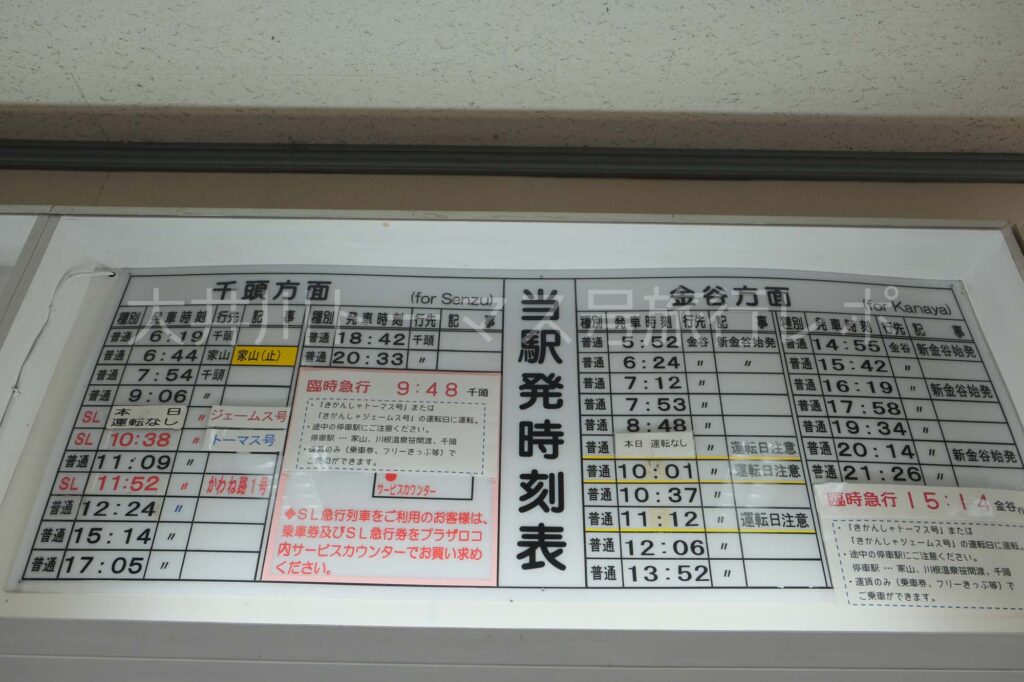 千頭方面 (for Senzu)
種別 発車時刻 行先 記事
普通 6:19 千頭
普通 6:44 家山 家山(止)
普通 7:54 千頭
普通 9:06 〃
SL 本日運転なし 〃 ジェームス号
SL 10:38 〃 トーマス号
普通 11:09 〃
SL 11:52 〃 かわね路1号
普通 12:24 〃
普通 15:14 〃
普通 17:05 〃
種別 発車時刻 行先 記事
普通 18:42 千頭
普通 20:33 〃
臨時急行 9:48 千頭
・「きかんしゃトーマス号」または
「きかんしゃジェームス号」の運転日に運転。
・途中の停車駅にご注意ください。
停車駅…家山、川根温泉笹間渡、千頭
・運賃のみ(乗車券、フリーきっぷ等)で
ご乗車ができます。
サービスカウンター
◆SL急行列車をご利用のお客様は、
乗車券及びSL急行券をプラザロコ
内サービスカウンターでお買い求め
ください。
当駅発時刻表
金谷方面 (for Kanaya)
種別 発車時刻 行先 記事
普通 5:52 金谷 新金谷始発
普通 6:24 〃 〃
普通 7:12 〃
普通 7:53 〃
普通 8:48 〃
普通 本日 運転なし 〃 運転日注意
普通 10:01 〃 運転日注意
普通 10:37 〃
普通 11:12 〃 運転日注意
普通 12:06 〃
普通 13:52 〃
種別 発車時刻 行先 記事
普通 14:55 金谷 新金谷始発
普通 15:42 〃
普通 16:19 〃 新金谷始発
普通 17:58 〃
普通 19:34 〃
普通 20:14 〃 新金谷始発
普通 21:26 〃
臨時急行 15:14 金谷
・「きかんしゃトーマス号」または
「きかんしゃジェームス号」の運転日に運転。
・途中の停車駅にご注意ください。
停車駅…家山、川根温泉笹間渡、千頭
・運賃のみ(乗車券、フリーきっぷ等)で
ご乗車ができます。